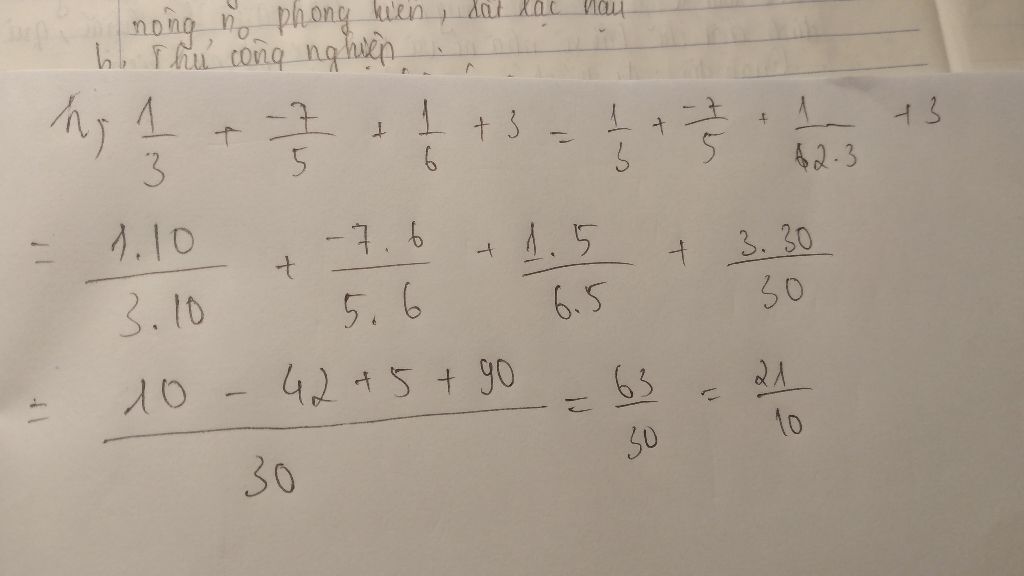 nông nọ phong kiến, đất xác hầu
b. Thủ công nghiệp.
h, 1/3 + -7/5 + 1/6 + 3 = 1/3 + -7/5 + 1/2.3 + 3
= 1.10/3.10 + -7.6/5.6 + 1.5/6.5 + 3.30/30
= 10 - 42 + 5 + 90/30 = 63/30 = 21/10